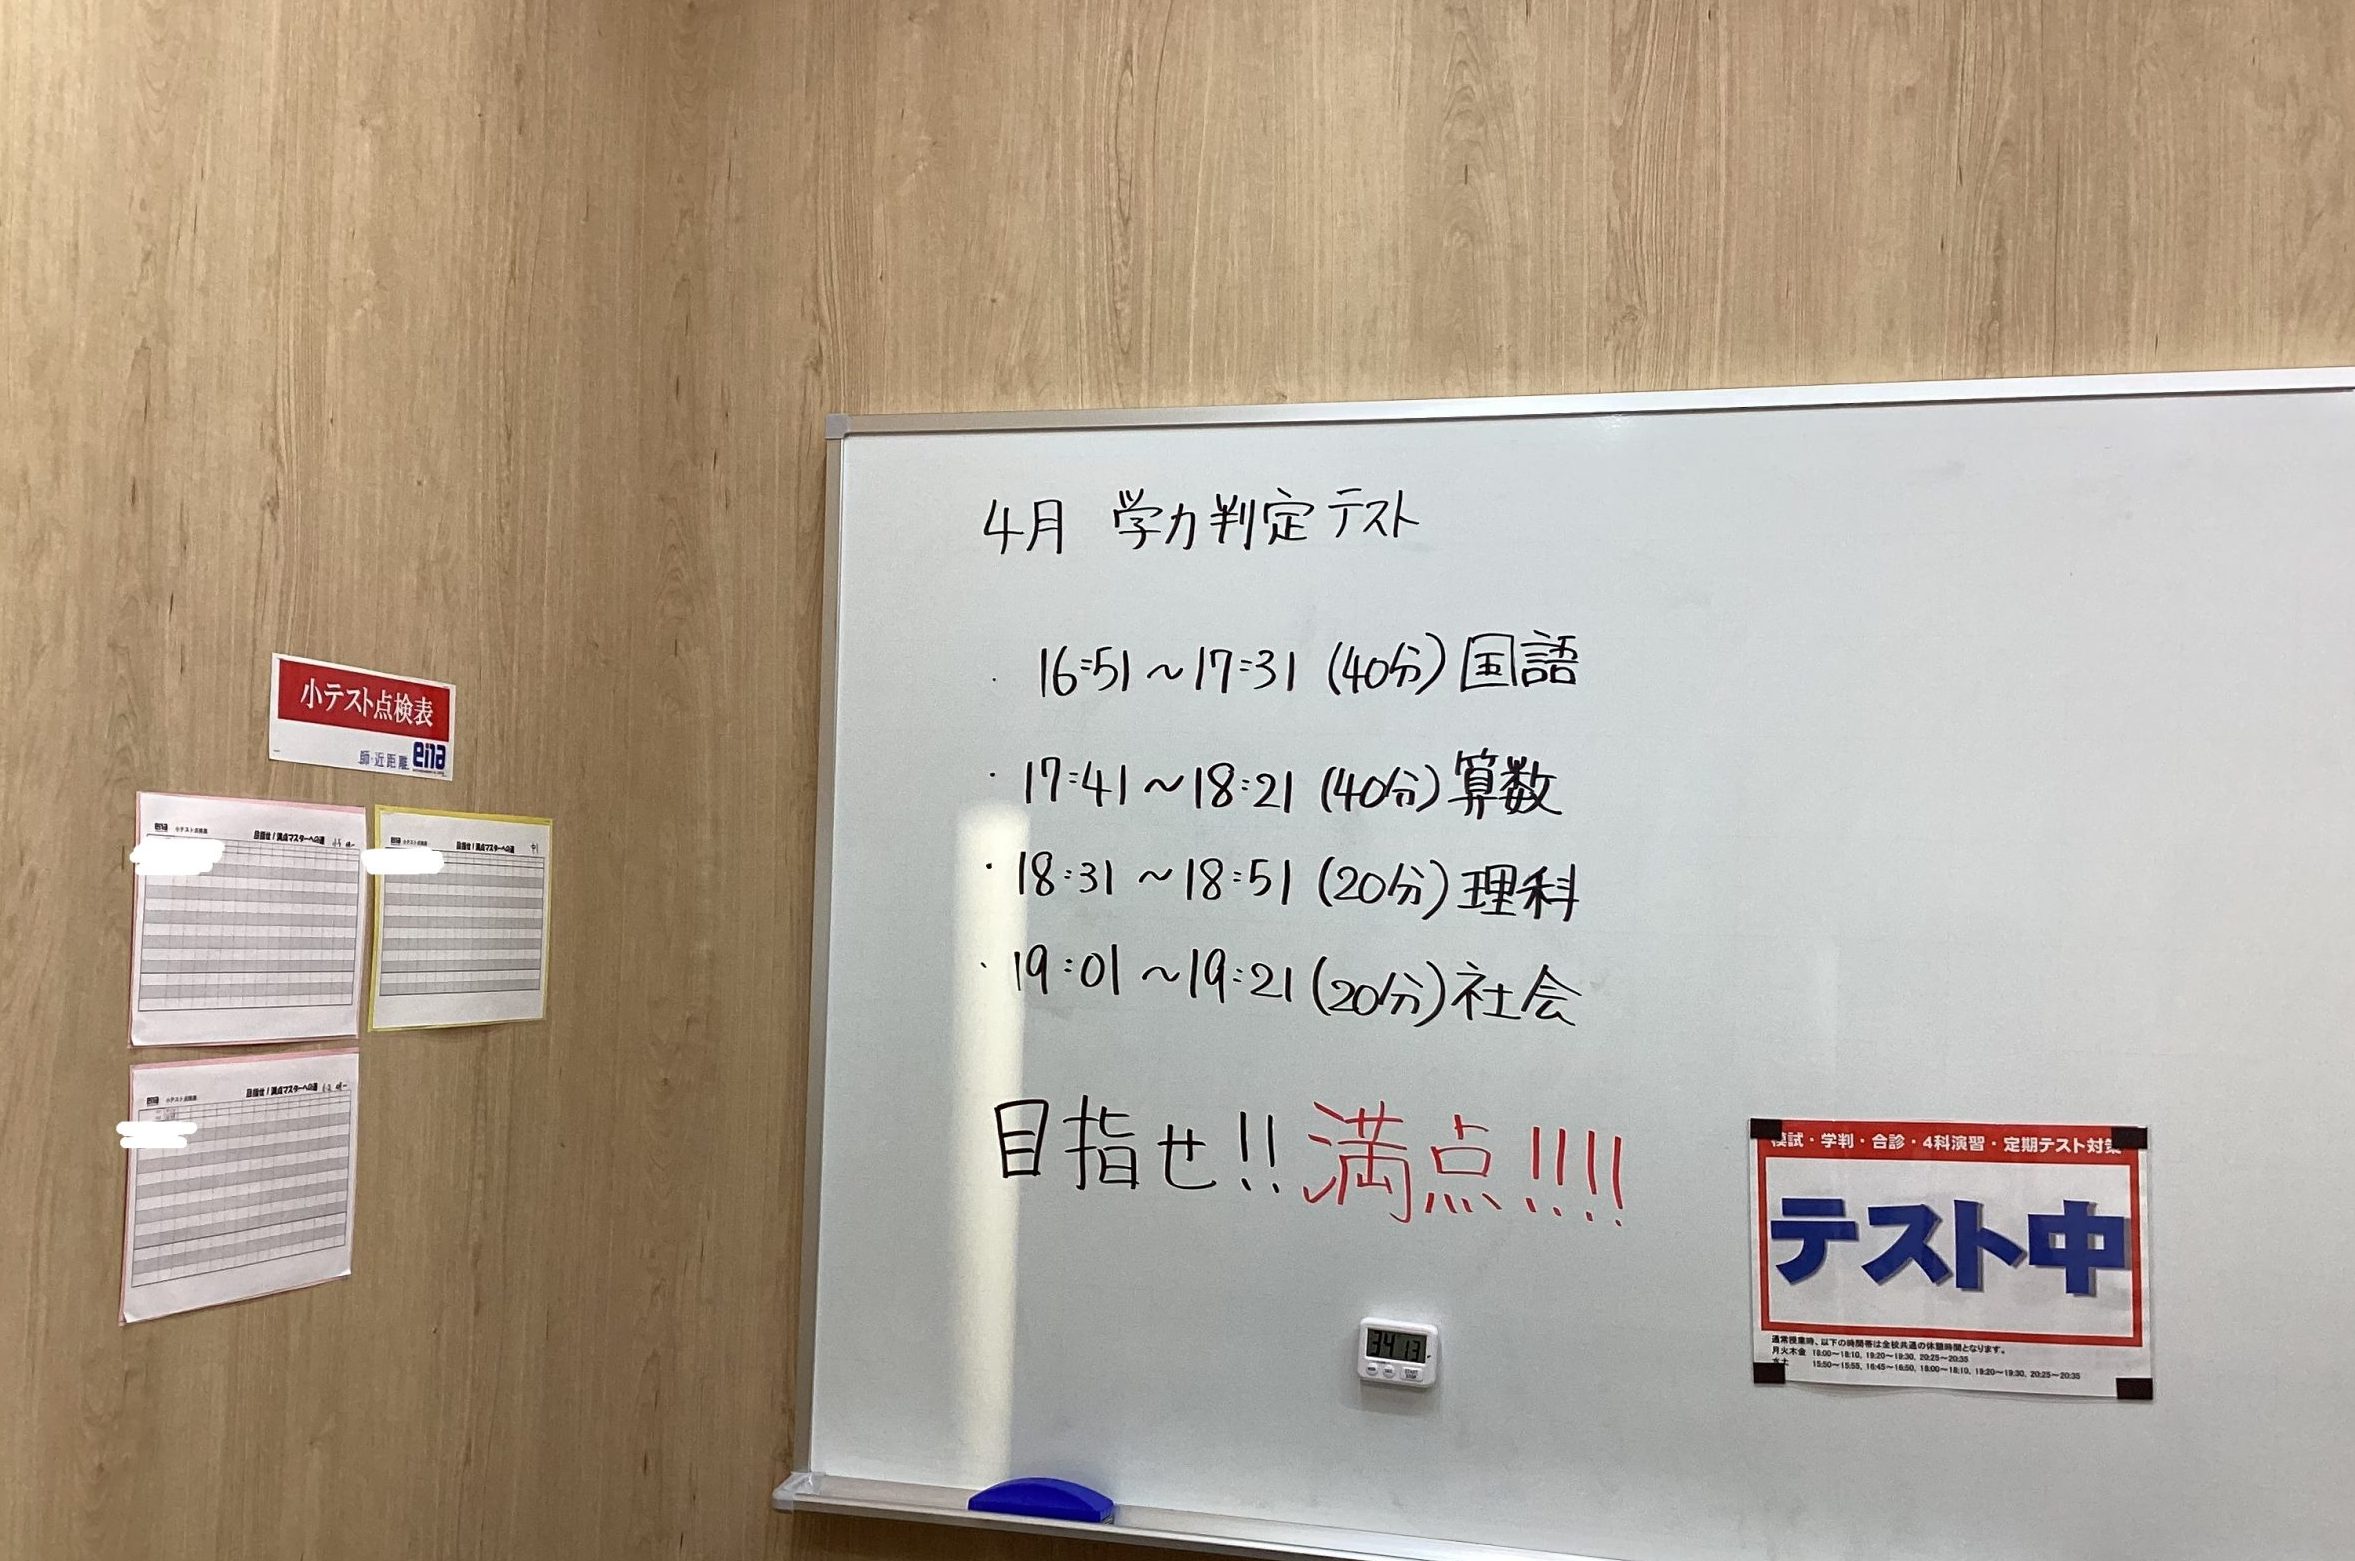 4月 学力判定テスト
・16:51～17:31 (40分) 国語
・17:41～18:21 (40分) 算数
・18:31～18:51 (20分) 理科
・19:01～19:21 (20分) 社会
目指せ!! 満点!!!!
小テスト点検表
師・近距離 ena
ena 小テスト点検表 目指せ！満点マスターへの道
ena 小テスト点検表 目指せ！満点マスターへの道 中1
ena 小テスト点検表 目指せ！満点マスターへの道
34 13
模試・学判・合診・4科演習・定期テスト対策
テスト中
通常授業時、以下の時間帯は全校共通の休憩時間となります。
月火木金 18:00～18:10, 19:20～19:30, 20:25～20:35
水土 15:50～15:55, 16:45～16:50, 18:00～18:10, 19:20～19:30, 20:25～20:35